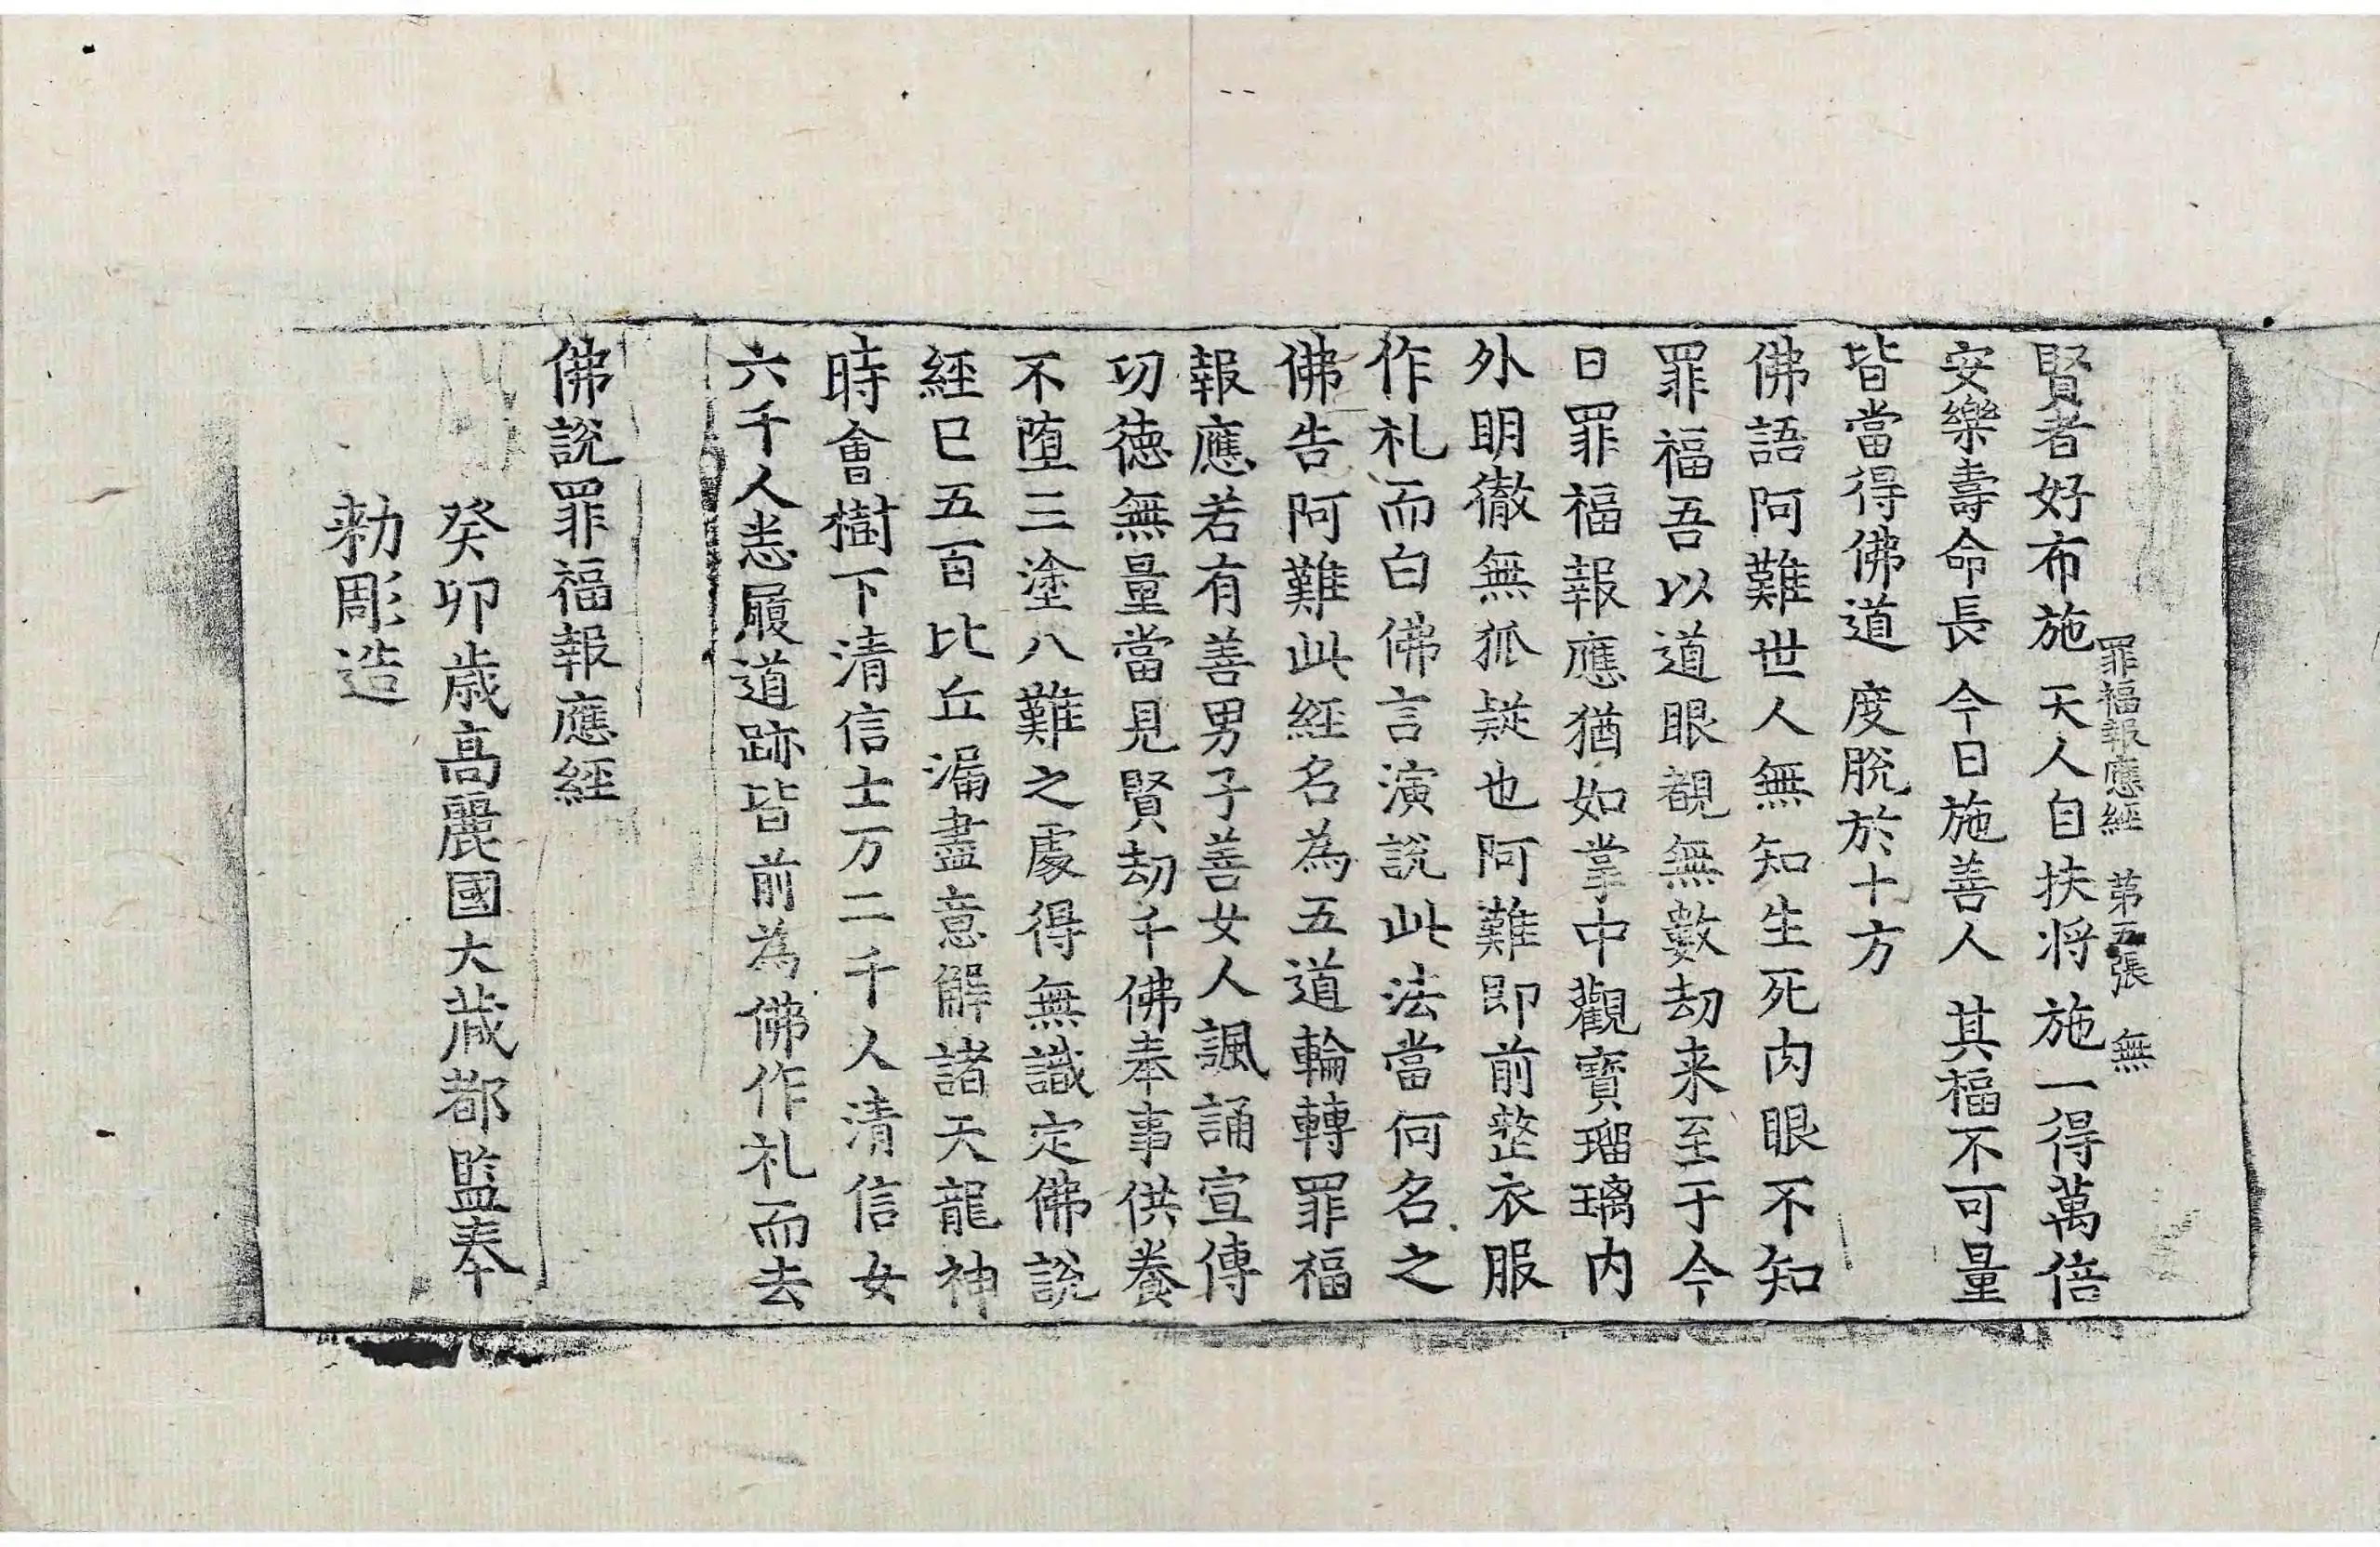 罪福報應經 第五張 無
賢者好布施 天人自扶将 施一得萬倍
安樂壽命長 今日施善人 其福不可量
皆當得佛道 度脫於十方
佛語阿難世人無知生死肉眼不知
罪福吾以道眼覩無數劫来至于今
日罪福報應猶如掌中觀寶瑠璃内
外明徹無狐疑也阿難即前整衣服
作礼而白佛言演說此法當何名之
佛告阿難此経名為五道輪轉罪福
報應若有善男子善女人諷誦宣傳
功徳無量當見賢劫千佛奉事供養
不墮三塗八難之處得無識定佛說
経已五百比丘漏盡意解諸天龍神
時會樹下清信士万二千人清信女
六千人悉履道跡皆前為佛作礼而去
佛說罪福報應経
癸卯歳高麗國大蔵都監奉
勑彫造